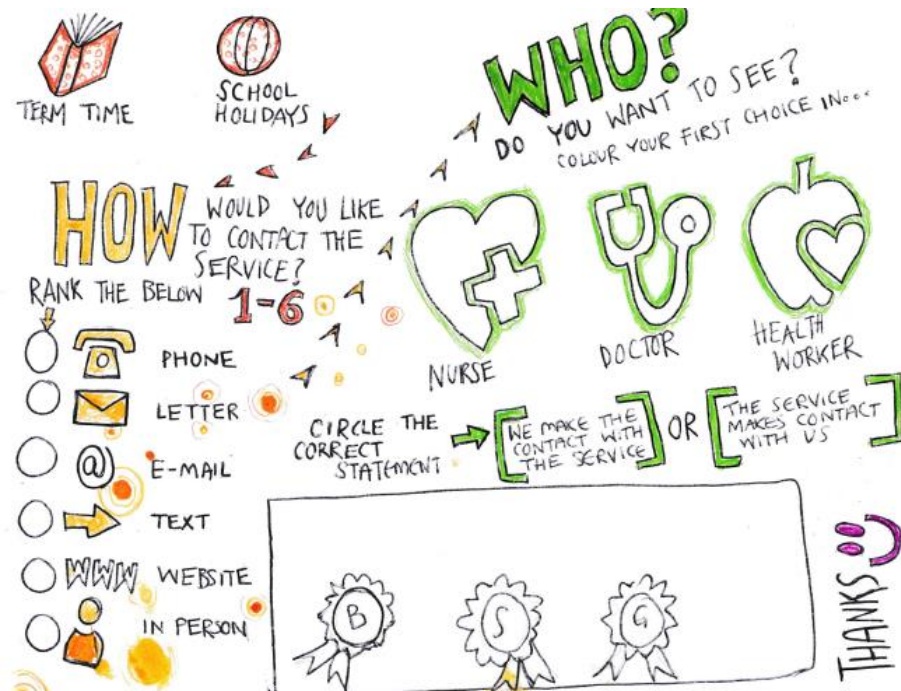 TERM TIME
SCHOOL
HOLIDAYS
WHO?
DO YOU WANT TO SEE?
COLOUR YOUR FIRST CHOICE IN...
HOW
WOULD YOU LIKE
TO CONTACT THE
SERVICE?
RANK THE BELOW
1-6
PHONE
LETTER
@ E-MAIL
TEXT
WWW WEBSITE
IN PERSON
NURSE
DOCTOR
HEALTH
WORKER
CIRCLE THE
CORRECT
STATEMENT
WE MAKE THE
CONTACT WITH
THE SERVICE
OR
THE SERVICE
MAKES CONTACT
WITH US
B
S
G
THANKS